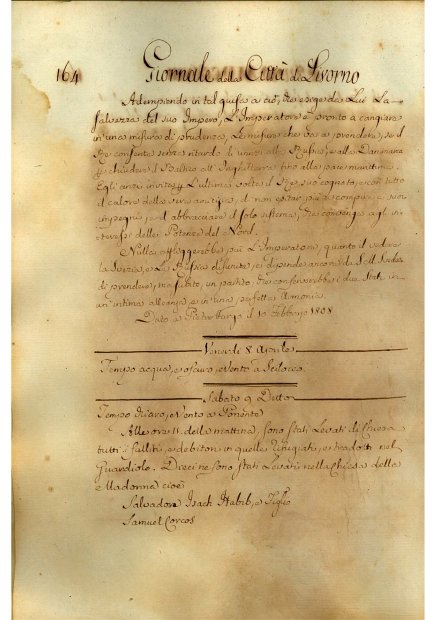 164
Giornale della Città di Livorno
Adempiendo in tal guisa a ciò, che esige da Lui La
salvezza del suo Impero, L'Imperatore è pronto a cangiare
in una misura di prudenza, Le misure che va a prendere, se il
Re consente senza ritardo di unirsi alla Russia, e alla Danimarca
p chiudere il Baltico all'Inghilterra fino alla pace marittima.
Egli anzi invita p L'ultima volta il Re suo cognato, e con tutto
il calore della vera amicizia, di non esitar più a compire i suoi
impegni, ed abbracciare il solo sistema, che convenga agli in-
teressi delle Potenze del Nord.
Nulla affliggerebbe più L'Imperatore, quanto il vedere
la Svezia, e La Russia disunite, e dipende ancora da S. M. Svedese
di prendere, ma subito, un partito, che conserverebbe i due Stati in
un'intima alleanza, e in una perfetta Armonia.
Dato a Pietroburgo il 10 Febbrajo 1808
Venerdì 8 Aprile
Tempo acqua, e oscuro, e Vento a Scilocco.
Sabato 9 Detto
Tempo chiaro, e Vento a Ponente
Alle ore 11. della mattina, sono stati Levati di Chiesa
tutti i falliti, e debitori in quelle rifugiati, e tradotti nel
Guardiolo. Dieci ne sono stati Levati nella Chiesa della
Madonna cioè
Salvadore Isach Habib, e Figlio
Samuel Corcos